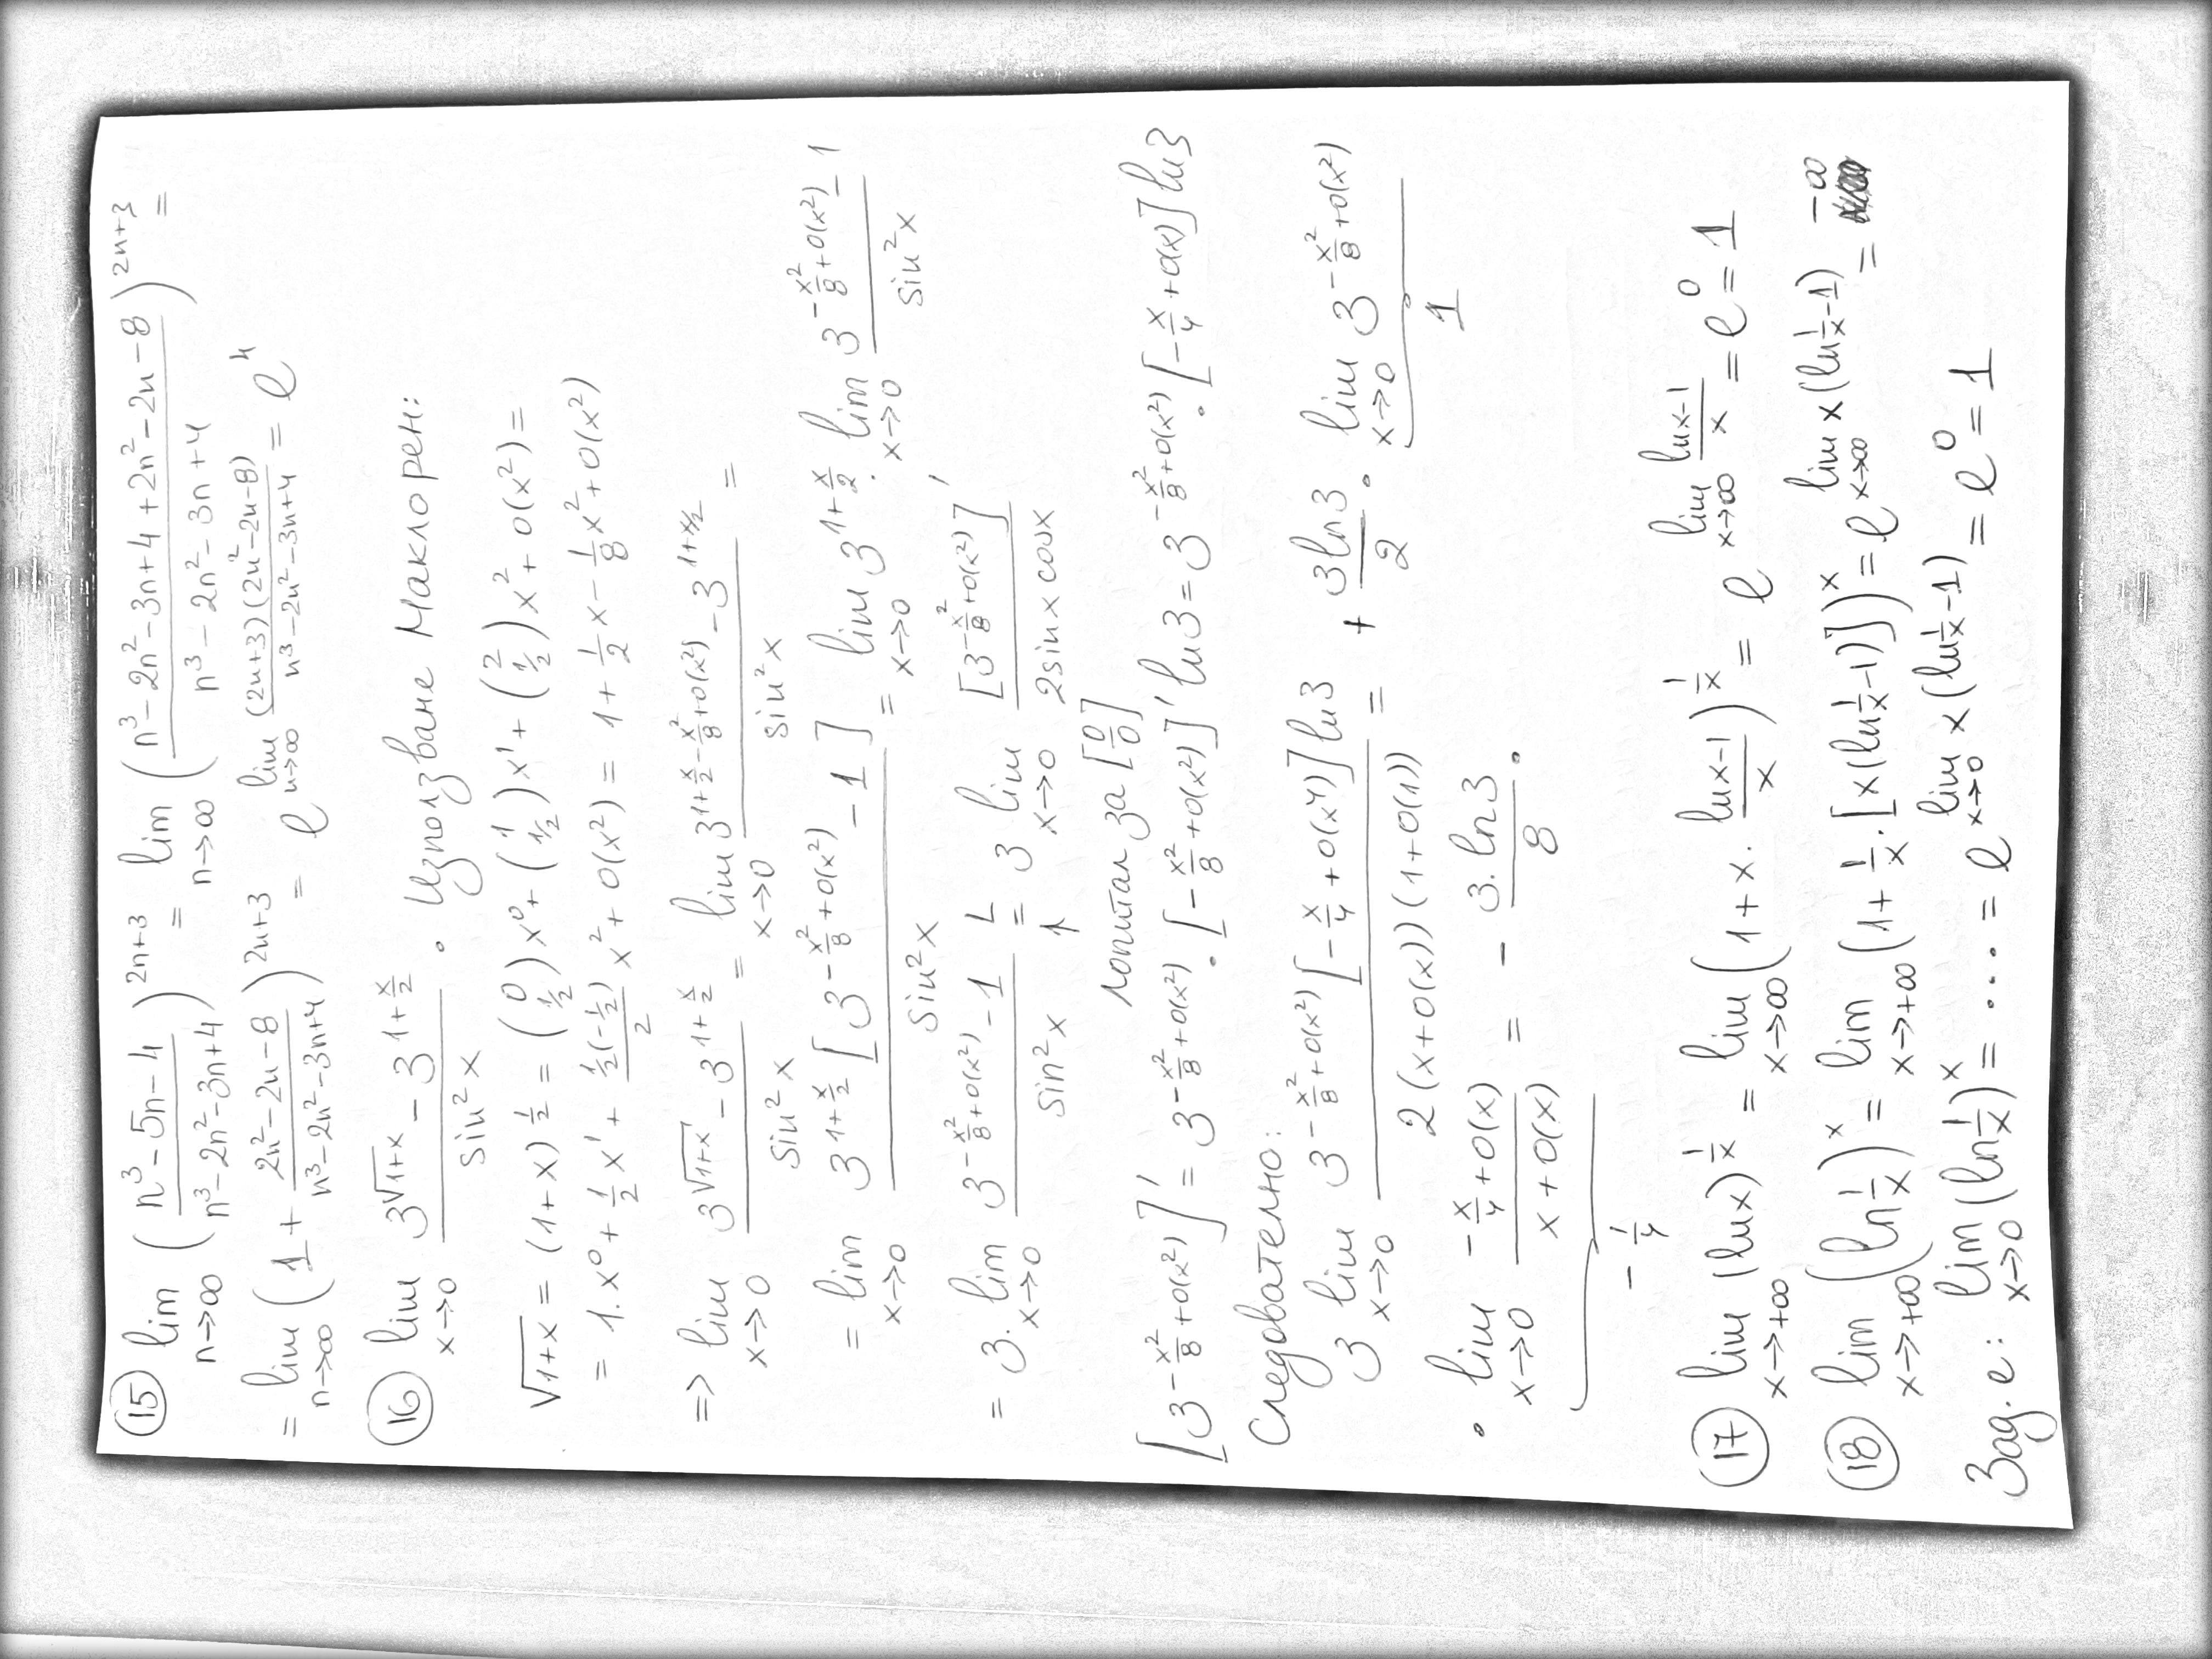 (15) lim n→∞ ((n³-5n-4)/(n³-2n²-3n+4))^(2n+3) = lim n→∞ ((n³-2n²-3n+4+2n²-2n-8)/(n³-2n²-3n+4))^(2n+3) =
= lim n→∞ (1+(2n²-2n-8)/(n³-2n²-3n+4))^(2n+3) = e^(lim n→∞ ((2n+3)(2n²-2n-8))/(n³-2n²-3n+4)) = e^4
(16) lim x→0 (3^(√(1+x)) - 3^(1+x/2))/(sin²x) . Използване Маклорен:
√(1+x) = (1+x)^(1/2) = (0 1/2)x⁰ + (1 1/2)x¹ + (2 1/2)x² + o(x²) =
= 1.x⁰ + 1/2 x¹ + (1/2(-1/2))/2 x² + o(x²) = 1 + 1/2 x - 1/8 x² + o(x²)
=> lim x→0 (3^(√(1+x)) - 3^(1+x/2))/(sin²x) = lim x→0 (3^(1+x/2-x²/8+o(x²)) - 3^(1+x/2))/(sin²x) =
= lim x→0 (3^(1+x/2) [3^(-x²/8+o(x²)) - 1])/(sin²x) = lim x→0 3^(1+x/2) . lim x→0 (3^(-x²/8+o(x²)) - 1)/(sin²x)
= 3. lim x→0 (3^(-x²/8+o(x²)) - 1)/(sin²x) L = ↑ 3 lim x→0 ([3^(-x²/8+o(x²))]')/(2sinx cosx)
Лопитал за [0/0]
[3^(-x²/8+o(x²))]' = 3^(-x²/8+o(x²)) . [-x²/8+o(x²)]' ln3 = 3^(-x²/8+o(x²)) . [-x/4+o(x)] ln3
Следователно:
3 lim x→0 (3^(-x²/8+o(x²)) [-x/4+o(x⁴)] ln3)/(2(x+o(x))(1+o(1))) = + (3ln3)/2 . lim x→0 3^(-x²/8+o(x²))
1
. lim x→0 (-x/4+o(x))/(x+o(x)) = - (3.ln3)/8 .
- 1/4
(17) lim x→+∞ (lnx)^(1/x) = lim x→∞ (1+x.(lnx-1)/x)^(1/x) = e^(lim x→∞ (lnx-1)/x) = e⁰ = 1
(18) lim x→+∞ (ln 1/x)^x = lim x→+∞ (1+1/x.[x(ln 1/x -1)])^x = e^(lim x→∞ x(ln 1/x -1)) = -∞
Зад. е: lim x→0 (ln 1/x)^x = ... = e^(lim x→0 x(ln 1/x -1)) = e⁰ = 1